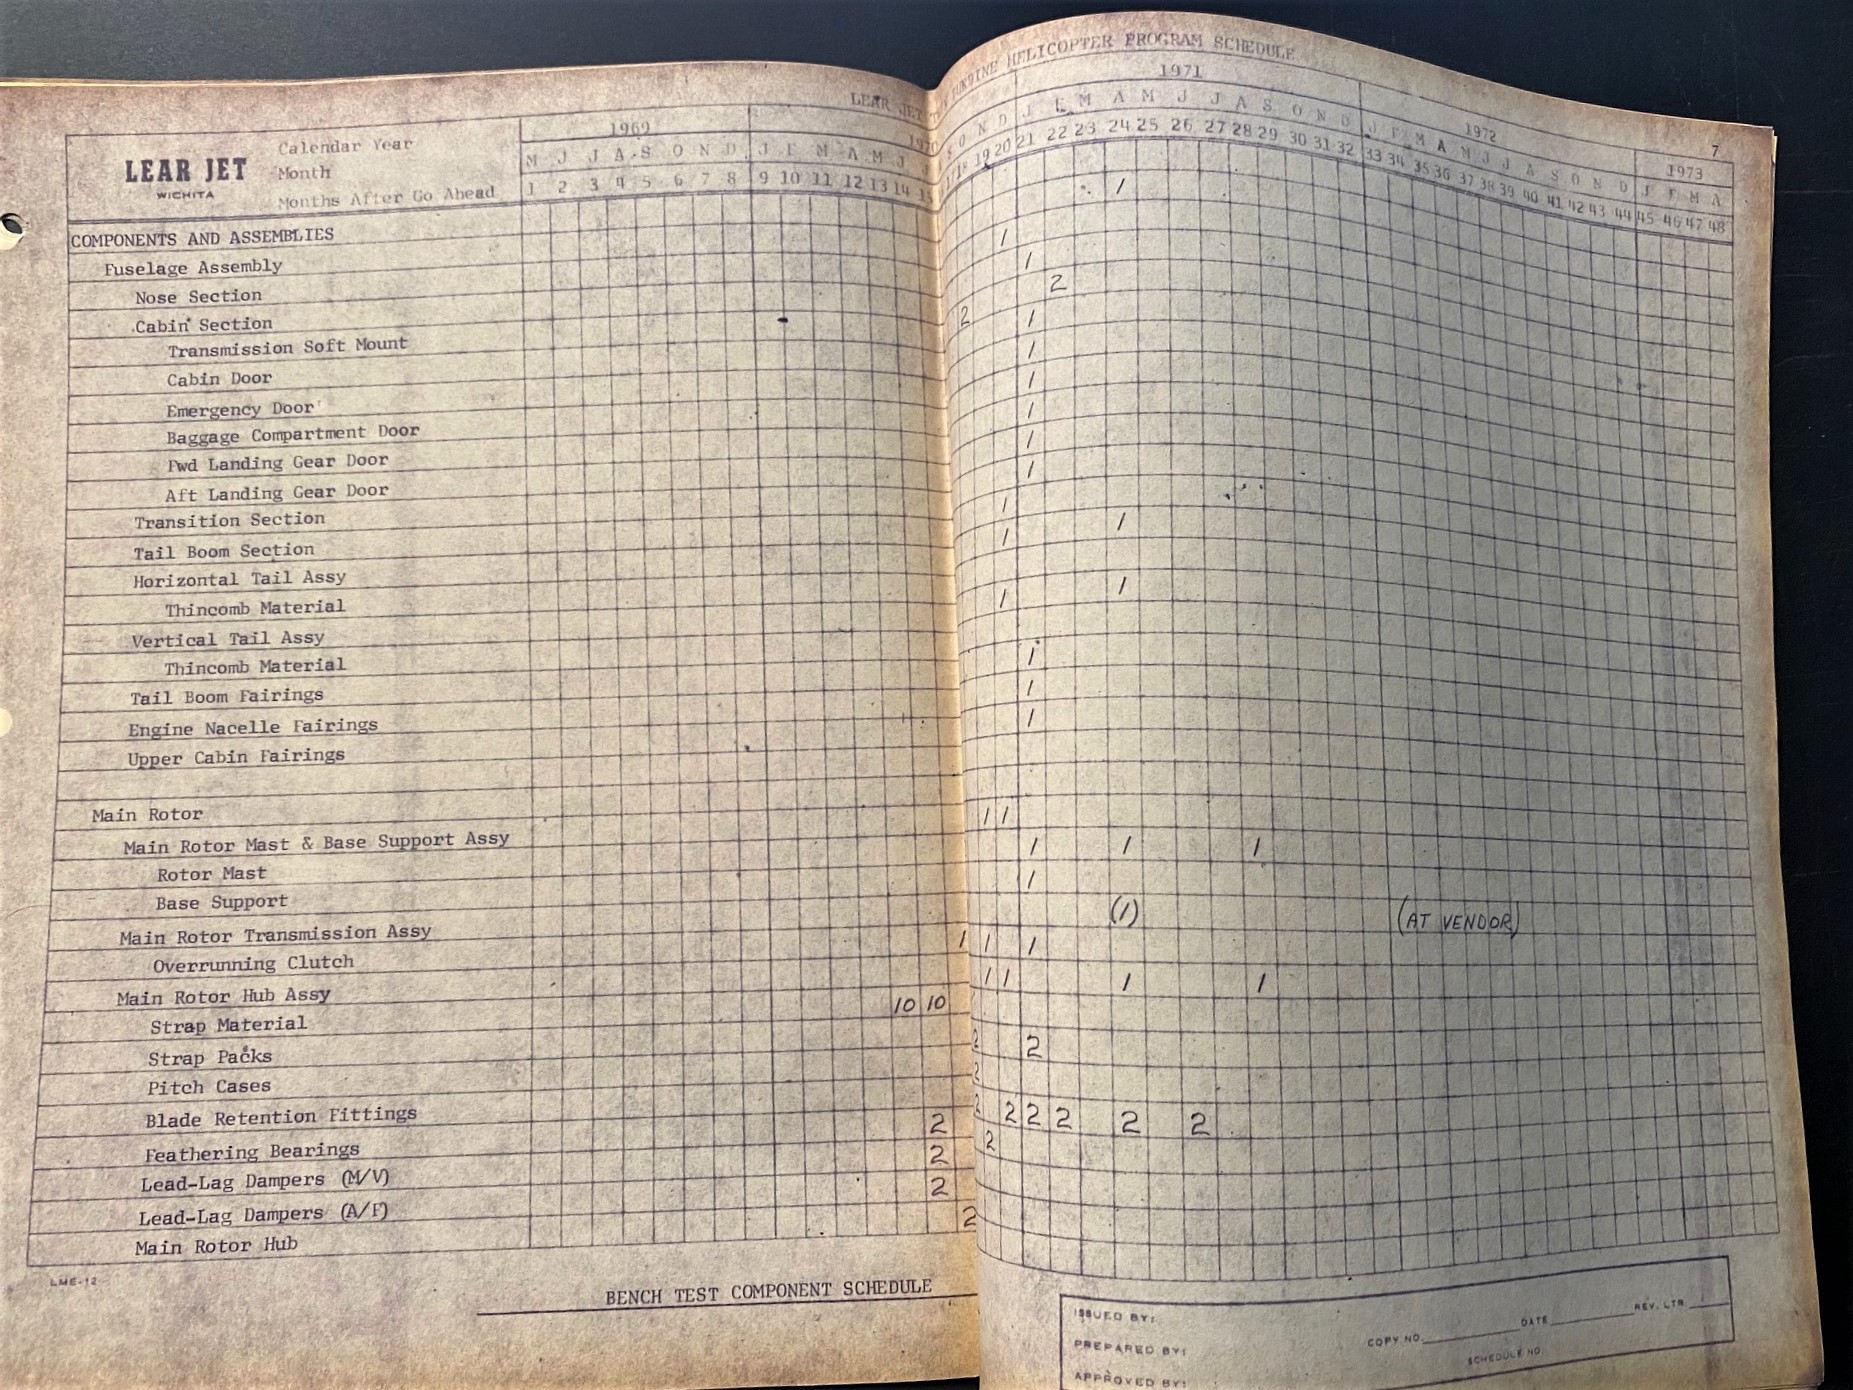 LEAR JET TURBINE HELICOPTER PROGRAM SCHEDULE
7
LEAR JET
WICHITA
Calendar Year 1969 1970 1971 1972 1973
Month M J J A S O N D J F M A M J S O N D J F M A M J J A S O N D J F M A M J J A S O N D J F M A
Months After Go Ahead 1 2 3 4 5 6 7 8 9 10 11 12 13 14 15 18 19 20 21 22 23 24 25 26 27 28 29 30 31 32 33 34 35 36 37 38 39 40 41 42 43 44 45 46 47 48
COMPONENTS AND ASSEMBLIES
Fuselage Assembly 1
Nose Section 1
Cabin Section 1
Transmission Soft Mount 2
Cabin Door 2 1
Emergency Door 1
Baggage Compartment Door 1
Fwd Landing Gear Door 1
Aft Landing Gear Door 1
Transition Section 1
Tail Boom Section 1
Horizontal Tail Assy 1 1
Thincomb Material
Vertical Tail Assy 1 1
Thincomb Material
Tail Boom Fairings 1
Engine Nacelle Fairings 1
Upper Cabin Fairings 1
Main Rotor
Main Rotor Mast & Base Support Assy 1 1
Rotor Mast 1 1 1
Base Support 1
Main Rotor Transmission Assy (1) (AT VENDOR)
Overrunning Clutch 1 1 1
Main Rotor Hub Assy 1 1 1 1
Strap Material 10 10
Strap Packs 2 2
Pitch Cases 2
Blade Retention Fittings 2 2 2 2 2 2
Feathering Bearings 2 2
Lead-Lag Dampers (M/V) 2
Lead-Lag Dampers (A/F) 2
Main Rotor Hub 2
LME-12
BENCH TEST COMPONENT SCHEDULE
ISSUED BY:
PREPARED BY:
APPROVED BY:
COPY NO. DATE REV. LTR.
SCHEDULE NO.